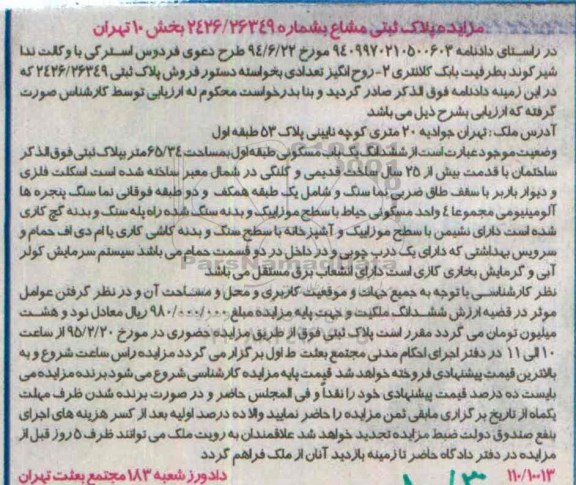 مزایده پلاک ثبتی مشاع بشماره ۲۴۲۶/۲۶۳۴۹ بخش ۱۰ تهران
در راستای دادنامه ۹۴۰۹۹۷۰۲۱۰۵۰۰۶۰۳ مورخ ۹۴/۶/۲۲ طرح دعوی فردوس استرکی با وکالت ندا
شیرکوند بطرفیت بابک کلانتری ۲- روح انگیز تعدادی بخواسته دستور فروش پلاک ثبتی ۲۴۲۶/۲۶۳۴۹ که
در این زمینه دادنامه فوق الذکر صادر گردید و بنا بدرخواست محکوم له ارزیابی توسط کارشناس صورت
گرفته که ارزیابی بشرح ذیل می باشد
آدرس ملک : تهران جوادیه ۲۰ متری کوچه نایینی پلاک ۵۳ طبقه اول
وضعیت موجود عبارت است از ششدانگ یک باب مسکونی طبقه اول بمساحت ۶۵/۳۴ متر بپلاک ثبتی فوق الذکر
ساختمان با قدمت بیش از ۲۵ سال ساخت قدیمی و کلنگی در شمال معبر ساخته شده است اسکلت فلزی
و دیوار باربر با سقف طاق ضربی نما سنگ و شامل یک طبقه همکف و دو طبقه فوقانی نما سنگ پنجره ها
آلومینیومی مجموعا ٤ واحد مسکونی حیاط با سطح موزاییک و بدنه سنگ شده راه پله سنگ و بدنه گچ کاری
شده است دارای نشیمن با سطح موزاییک و آشپزخانه با سطح سنگ و بدنه کاشی کاری با ام دی اف حمام و
سرویس بهداشتی که دارای یک درب چوبی و در داخل در دو قسمت حمام می باشد سیستم سرمایش کولر
آبی و گرمایش بخاری گازی است دارای انشعاب برق مستقل می باشد.
نظر کارشناسی با توجه به جمیع جهات و موقعیت کاربری و محل و مساحت آن و در نظر گرفتن عوامل
موثر در قضیه ارزش ششدانگ ملکیت و جهت پایه مزایده مبلغ ۹۸۰/۰۰۰/۰۰۰ ریال معادل نود و هشت
میلیون تومان می گردد مقرر است پلاک ثبتی فوق از طریق مزایده حضوری در مورخ ۹۵/۳/۲۰ از ساعت
۱۰ الی ۱۱ در دفتر اجرای احکام مدنی مجتمع بعثت ط اول برگزار می گردد مزایده راس ساعت شروع و به
بالاترین قیمت پیشنهادی فروخته خواهد شد قیمت پایه مزایده کارشناسی شروع می شود برنده مزایده می
بایست ده درصد قیمت پیشنهادی خود را نقداً و فی المجلس حاضر و در صورت برنده شدن ظرف مهلت
یکماه از تاریخ برگزاری مابقی ثمن مزایده را حاضر نمایید والا ده درصد اولیه بعد از کسر هزینه های اجرای
بنفع صندوق دولت ضبط مزایده تجدید خواهد شد علاقمندان به رویت ملک می توانند ظرف ۵ روز قبل از
مزایده در دفتر دادگاه حاضر تا زمینه بازدید آنان از ملک فراهم گردد
۱۱۰/۱۰۰۱۳ دادورز شعبه ۱۸۳ مجتمع بعثت تهران